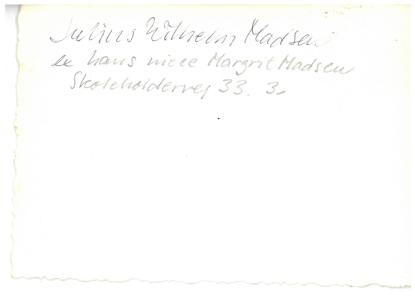 Julius Wilhelm Madsen
er hans niece Margrit Madsen
Skoleholdervej 33. 3.